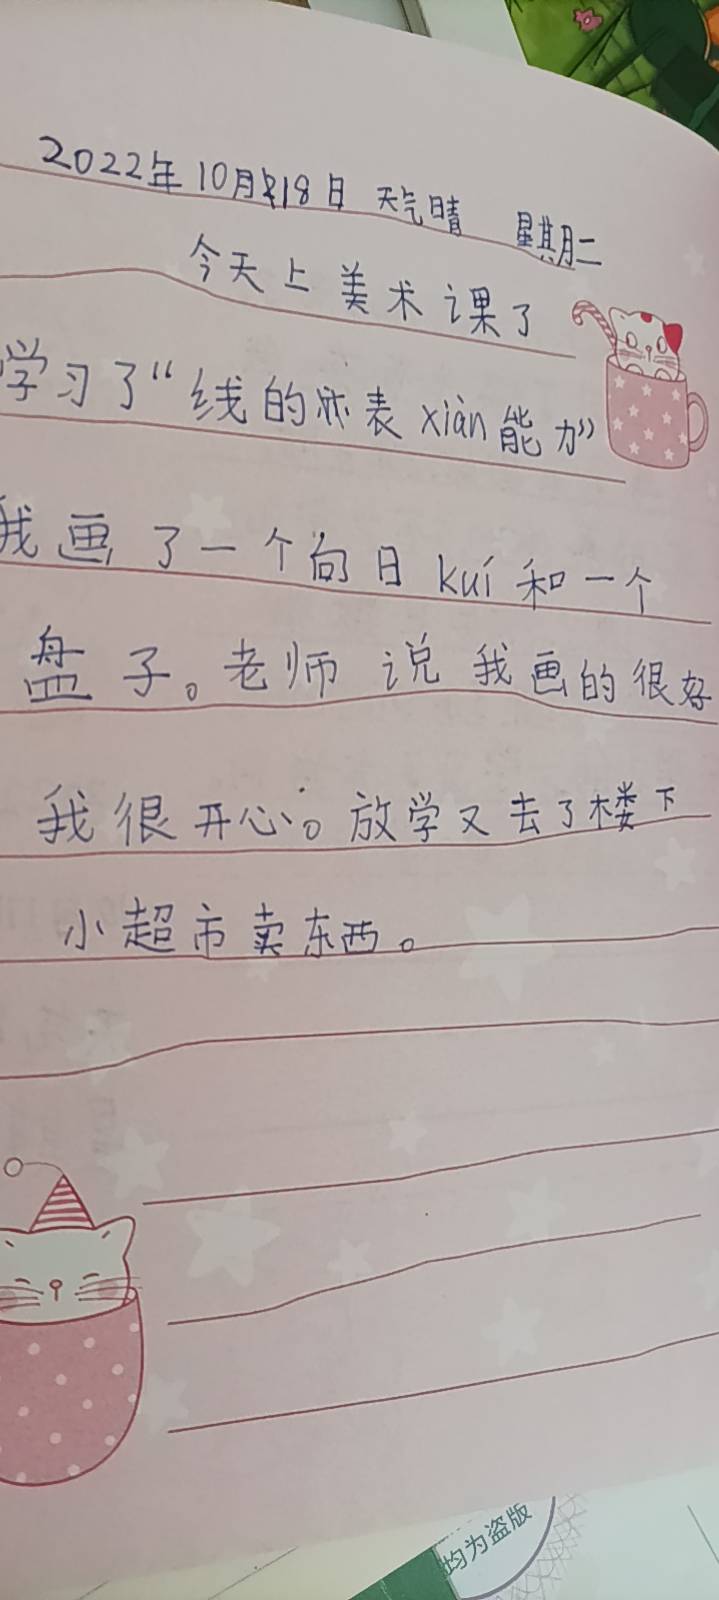 2022年10月18日 天气晴 星期二
今天上美术课了
学习了“线的表xiàn能力”
我画了一个向日kuí和一个
盘子。老师说我画的很好
我很开心。放学又去了楼下
小超市卖东西。
均为盗版